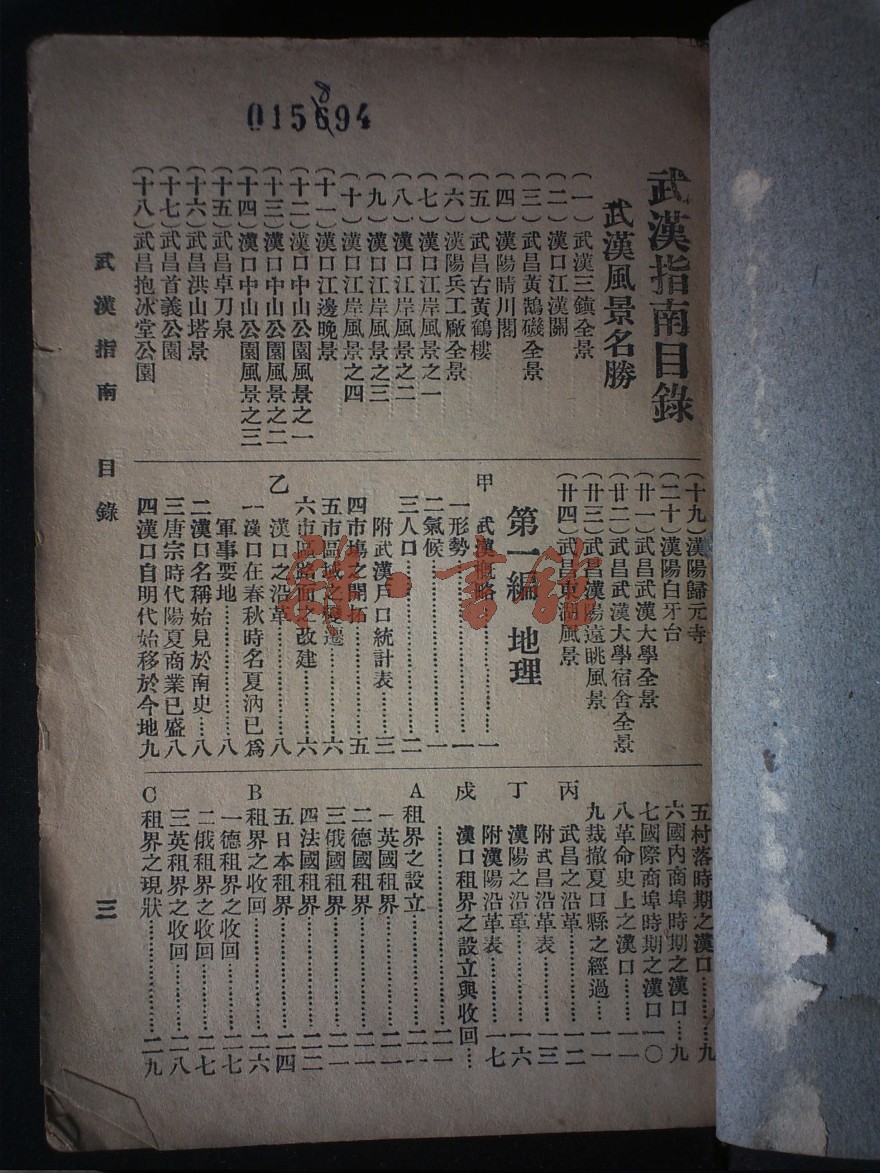 015694
8
武漢指南目錄
武漢風景名勝
(一)武漢三鎮全景
(二)漢口江漢關
(三)武昌黃鵠磯全景
(四)漢陽晴川閣
(五)武昌古黃鶴樓
(六)漢陽兵工廠全景
(七)漢口江岸風景之一
(八)漢口江岸風景之二
(九)漢口江岸風景之三
(十)漢口江岸風景之四
(十一)漢口江邊晚景
(十二)漢口中山公園風景之一
(十三)漢口中山公園風景之二
(十四)漢口中山公園風景之三
(十五)武昌卓刀泉
(十六)武昌洪山塔景
(十七)武昌首義公園
(十八)武昌抱冰堂公園
(十九)漢陽歸元寺
(二十)漢陽白牙台
(廿一)武昌武漢大學全景
(廿二)武昌武漢大學宿舍全景
(廿三)武昌漢陽遠眺風景
(廿四)武昌東湖風景
第一編 地理
甲 武漢概略……一
一形勢……一
二氣候……一
三人口……二
附武漢戶口統計表……三
四市塲之開拓……五
五市區域之變遷……六
六市區路面之改建……六
乙 漢口之沿革……八
一漢口在春秋時名夏汭已爲
軍事要地……八
二漢口名稱始見於南史…八
三唐宗時代陽夏商業已盛八
四漢口自明代始移於今地九
五村落時期之漢口……九
六國內商埠時期之漢口…九
七國際商埠時期之漢口一〇
八革命史上之漢口……一一
九裁撤夏口縣之經過…一一
丙 武昌之沿革……一二
附武昌沿革表……一三
丁 漢陽之沿革……一六
附漢陽沿革表……一七
戍 漢口租界之設立與收回…
……二一
A租界之設立……二一
一英國租界……二一
二德國租界……二一
三俄國租界……二一
四法國租界……二二
五日本租界……二四
B租界之收回……二六
一德租界之收回……二七
二俄租界之收回……二七
三英租界之收回……二八
C租界之現狀……二九
武漢指南 目錄
三
雜·書館